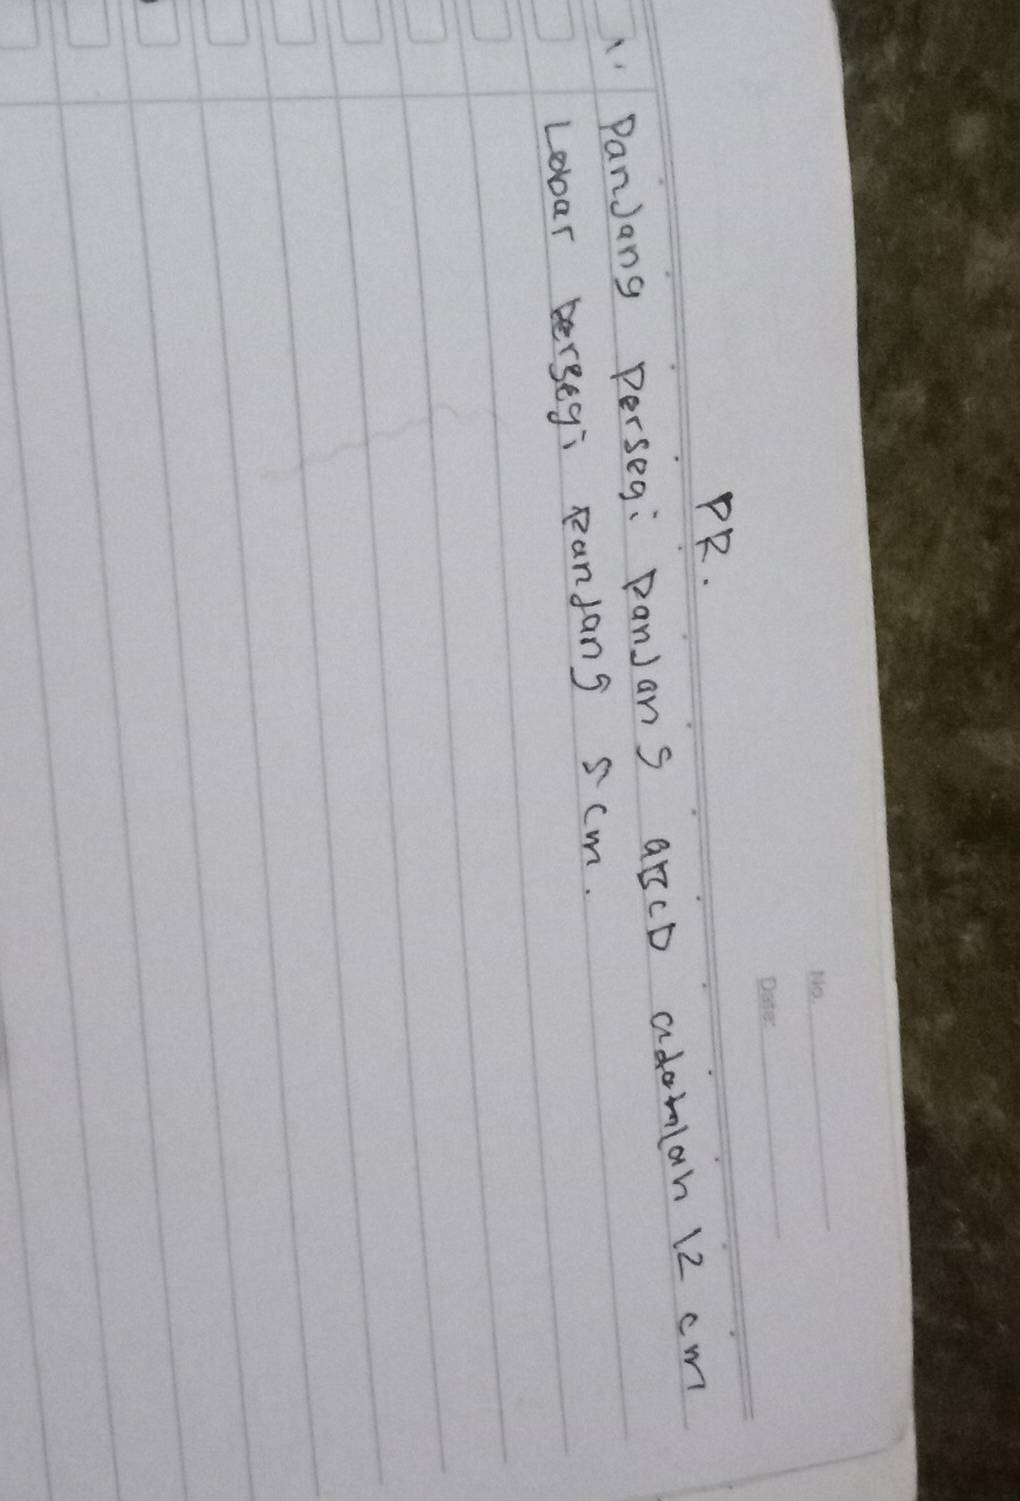 No.
Date:
PR.
1. Panjang persegi panjang aBCD adalah 12 cm
Lebar persegi panjang 5 cm.